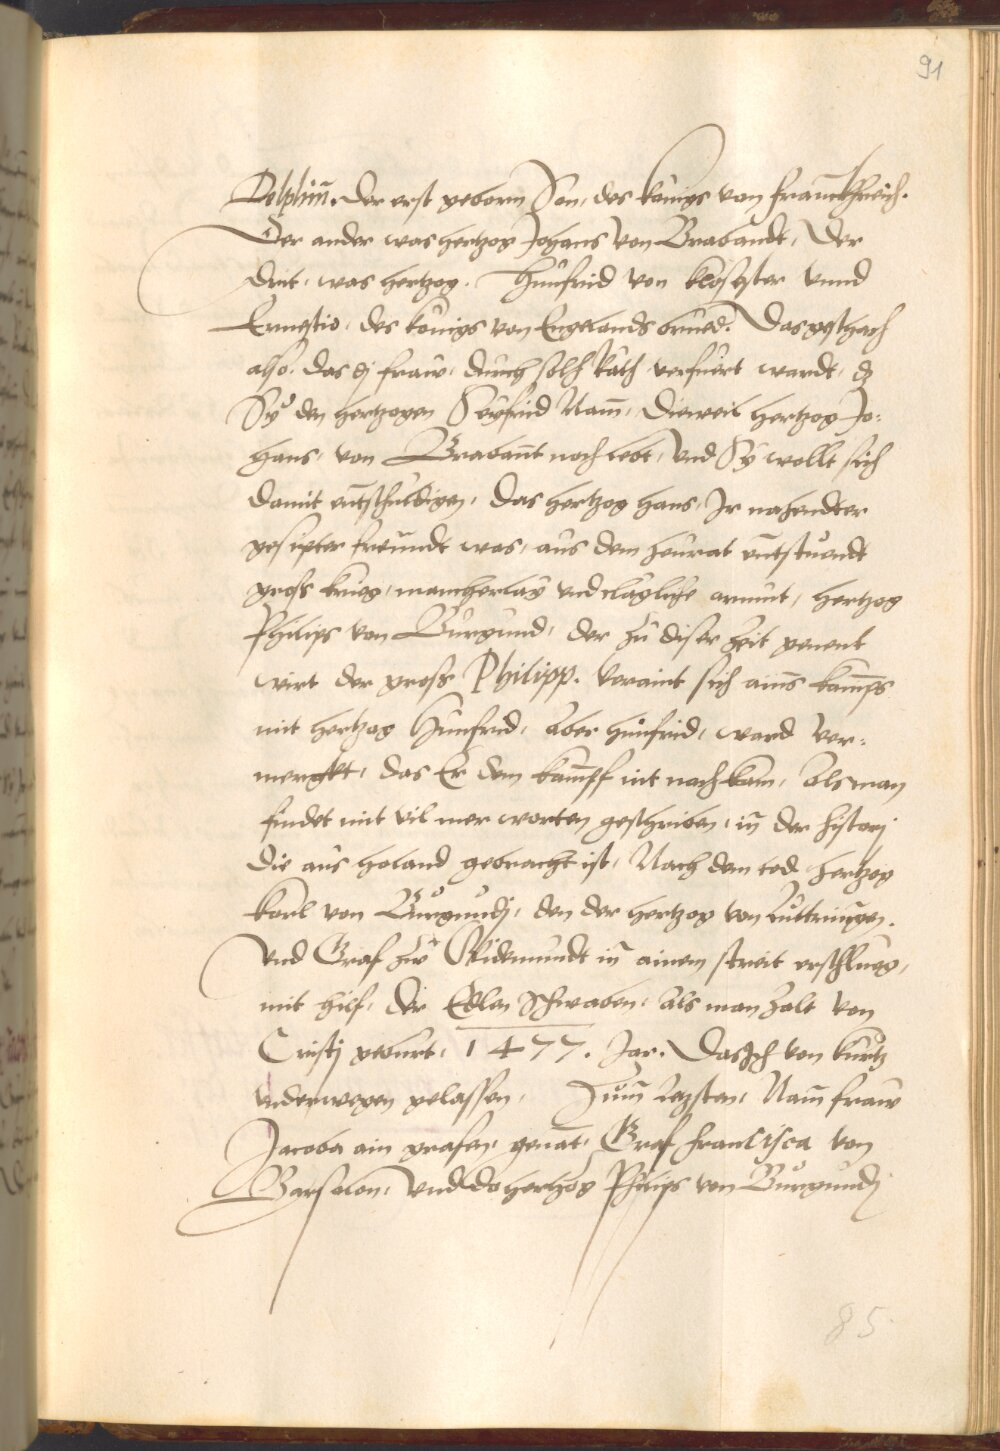 91
Delphin̄. der erst geborn Son, des königs von franckhreich.
Der ander was hertzog Johans von Brabandt, Der
drit, was hertzog. Hunfrid von klösester vnnd
Ernestio, des königs von Engelands brued. Das geschach
also, das dj fraw, durch solh Räth verfuert wardt, dz
Sy den hertzogen Seyfrid Nam̄, Dieweil hertzog Jo:
hans, von Brabannt noch lebt, vnd Sy wollt sich
damit entschuldigen, das hertzog hans, Jr nahendter
gesipter freundt was, aus dem heurat enntstuendt
gross krieg, mancherlay vnd clägliche armut, hertzog
Philips von Burgund, der zu diser zeit genent
wirt der gross Philipp. veraint sich ains kampfs
mit hertzog Hunfrid, aber hunfrid, ward ver:
merckht, das Er dem kampff nit nachkam, als man
findet mit vil mer worten geschriben, in der history
die aus holand gebracht ist, Nach dem tod hertzog
karl von Burgundj, den der hertzog von Luttringen.
vnd Graf zw Widemundt in ainem streit erschlueg,
mit hilf, der Edlen Schwaben, als man zalt von
Cristj geburt, 1477. Jar. Das Jch von kurtz
vnderwegen gelassen, Zum letzsten, Nam̄ fraw
Jacoba ain grafen, genāt, Graf Francisca von
Barselen, vnd do hertzog Philips von Burgundj
85